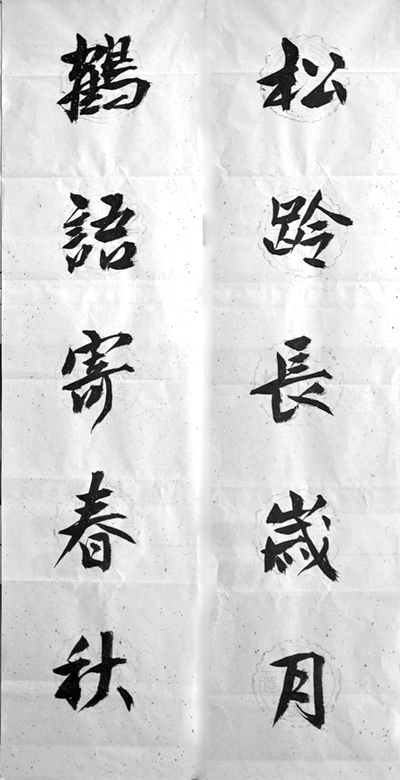 松龄長歲月
鶴語寄春秋